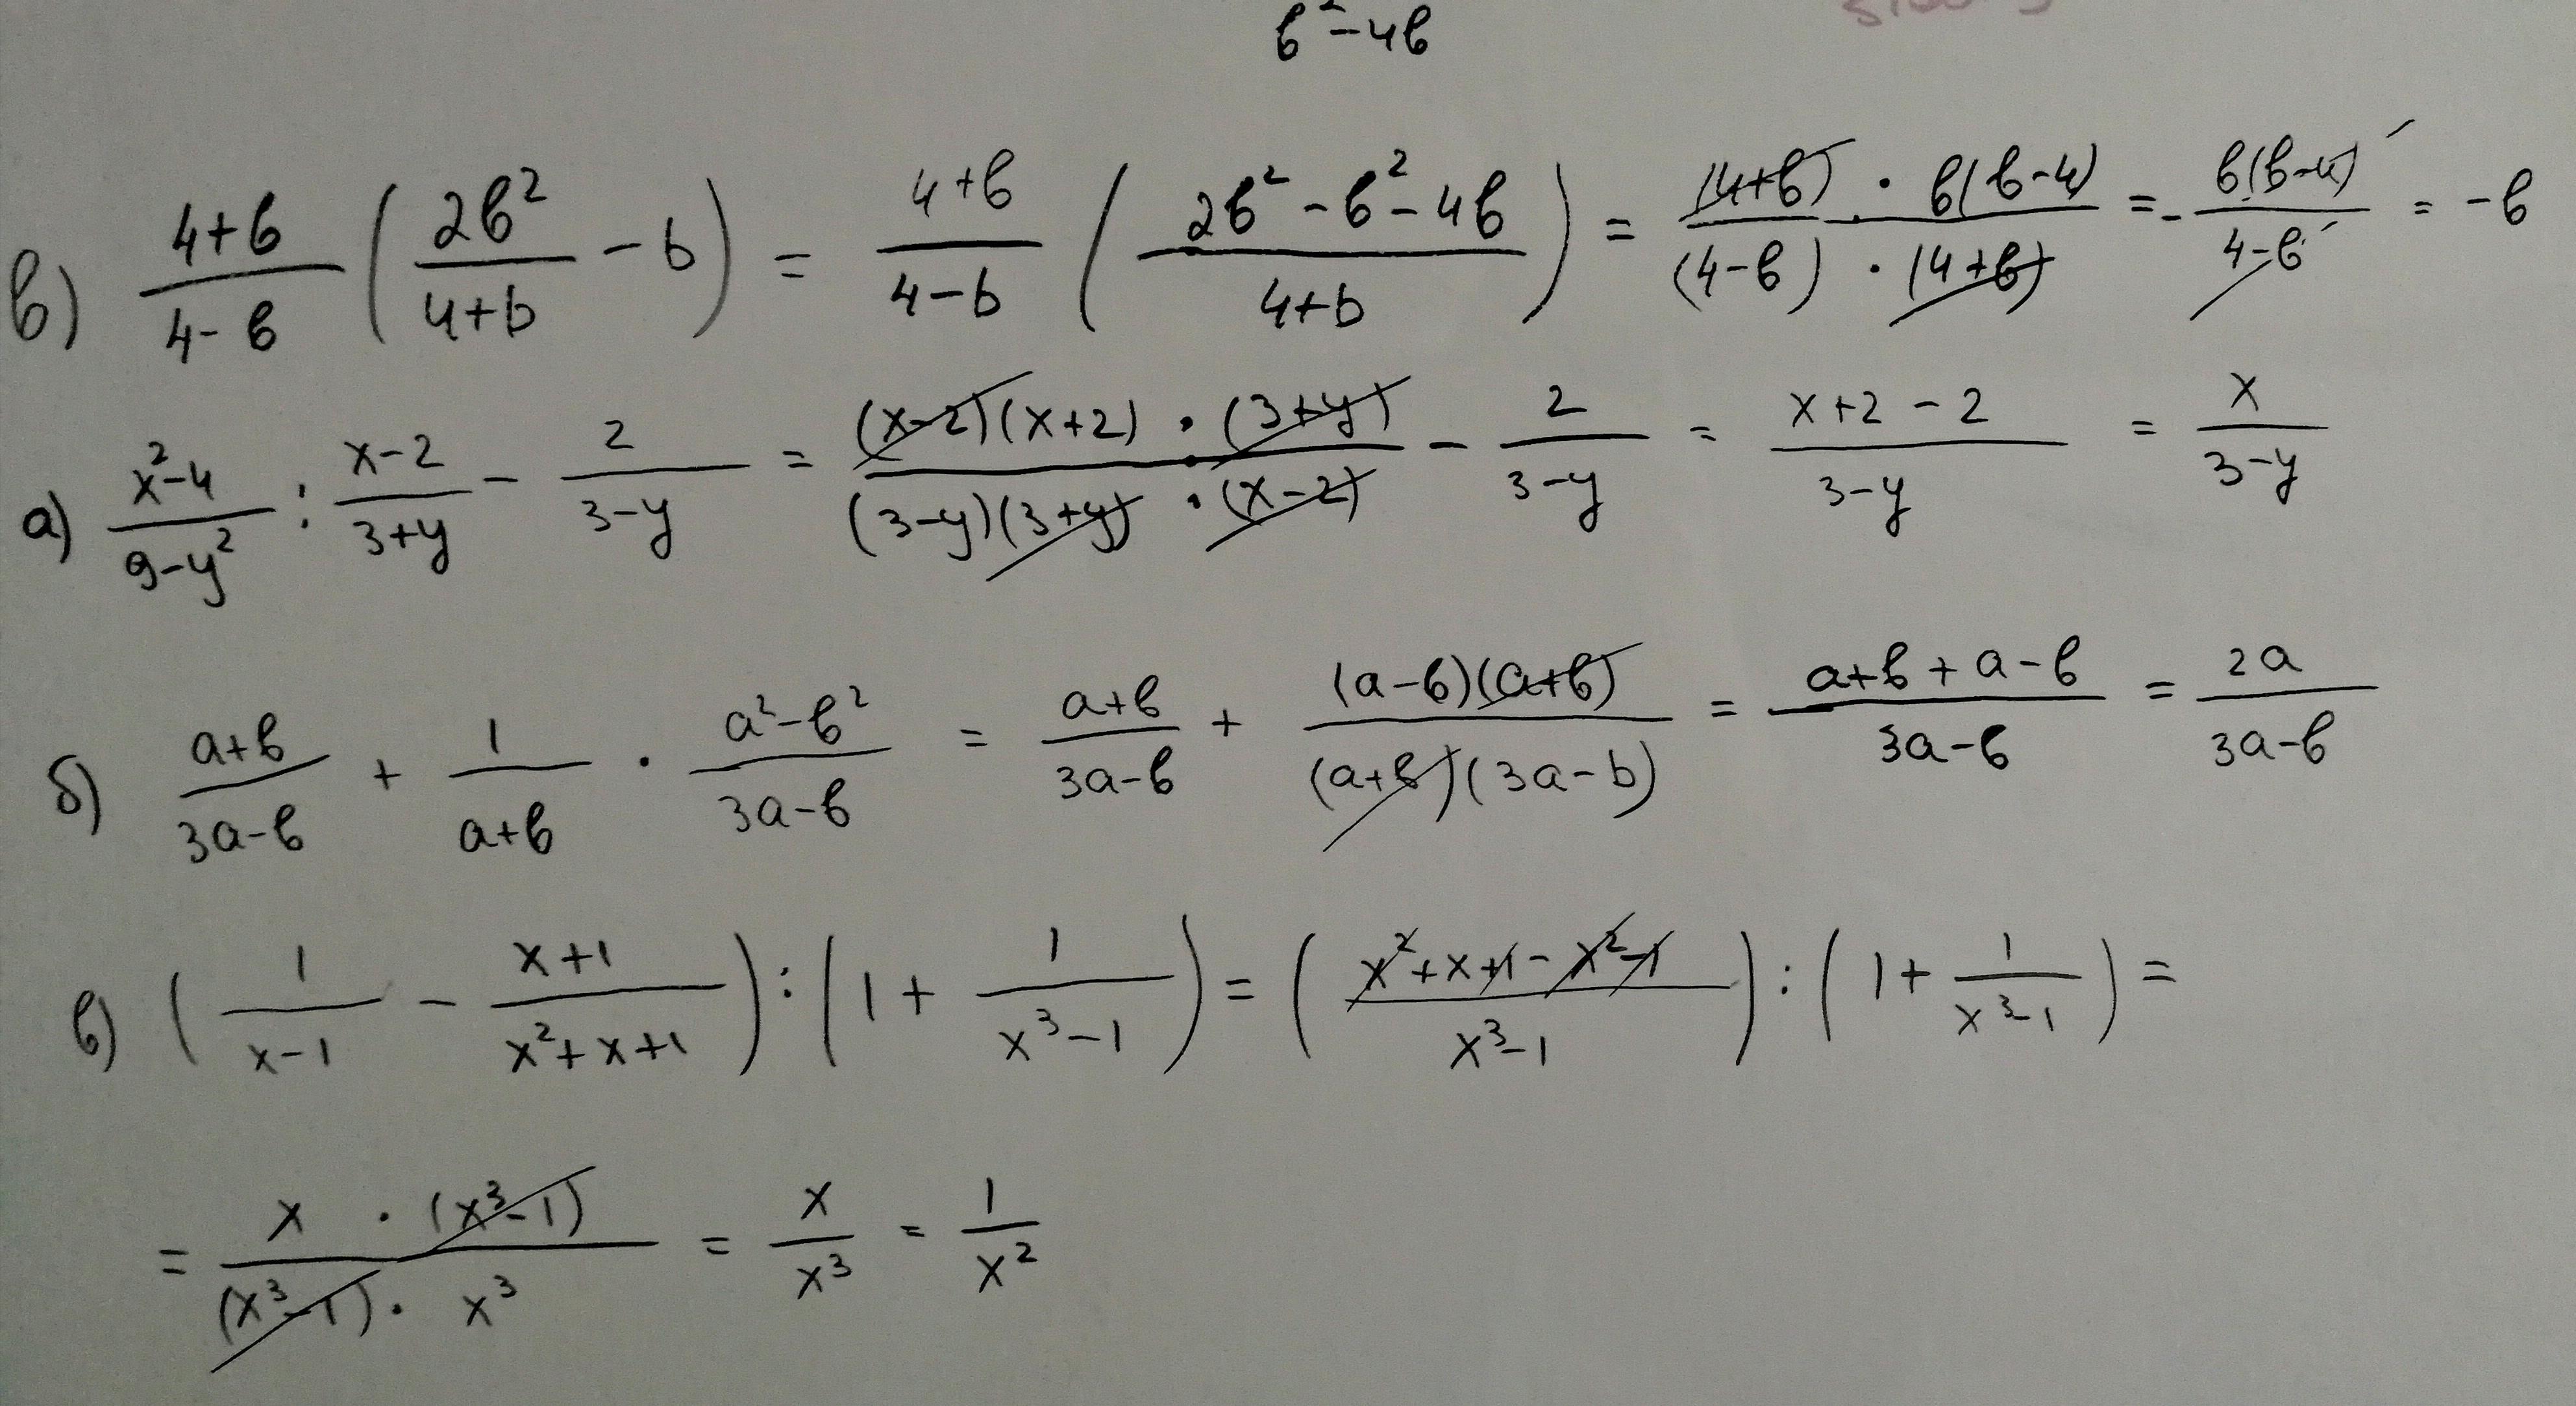 в² - 4в
в) (4+в)/(4-в) (2в²/(4+b) - b) = (4+в)/(4-b) ((2в² - в² - 4в)/(4+b)) = ((4+в) · в(в-4))/((4-в) · (4+в)) = - в(в-4)/(4-в) = -в
а) (x²-4)/(9-y²) : (x-2)/(3+y) - 2/(3-y) = ((x-2)(x+2) · (3+y))/((3-y)(3+y) · (x-2)) - 2/(3-y) = (x+2-2)/(3-y) = x/(3-y)
б) (a+в)/(3a-в) + 1/(a+в) · (a²-в²)/(3a-в) = (a+в)/(3a-в) + ((a-в)(a+в))/((a+в)(3a-b)) = (a+в+a-в)/(3a-в) = 2a/(3a-в)
в) (1/(x-1) - (x+1)/(x²+x+1)) : (1 + 1/(x³-1)) = ((x²+x+1-x²-1)/(x³-1)) : (1 + 1/(x³-1)) =
= (x · (x³-1))/((x³-1) · x³) = x/x³ = 1/x²